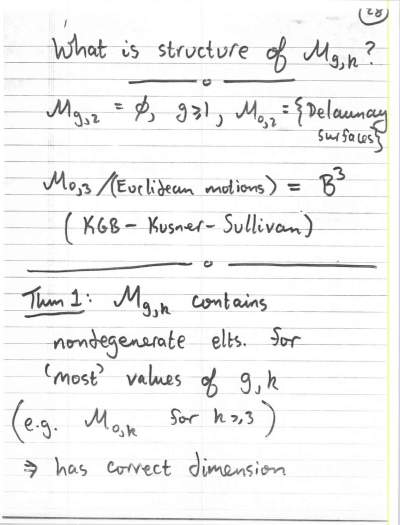 28
What is structure of M_{g,k}?
M_{g,2} = ∅, g≥1, M_{0,2} = {Delaunay
surfaces}
M_{0,3}/(Euclidean motions) = B³
(KGB - Kusner - Sullivan)
Thm 1: M_{g,k} contains
nondegenerate elts. for
'most' values of g,k
(e.g. M_{0,k} for k≥3)
⇒ has correct dimension